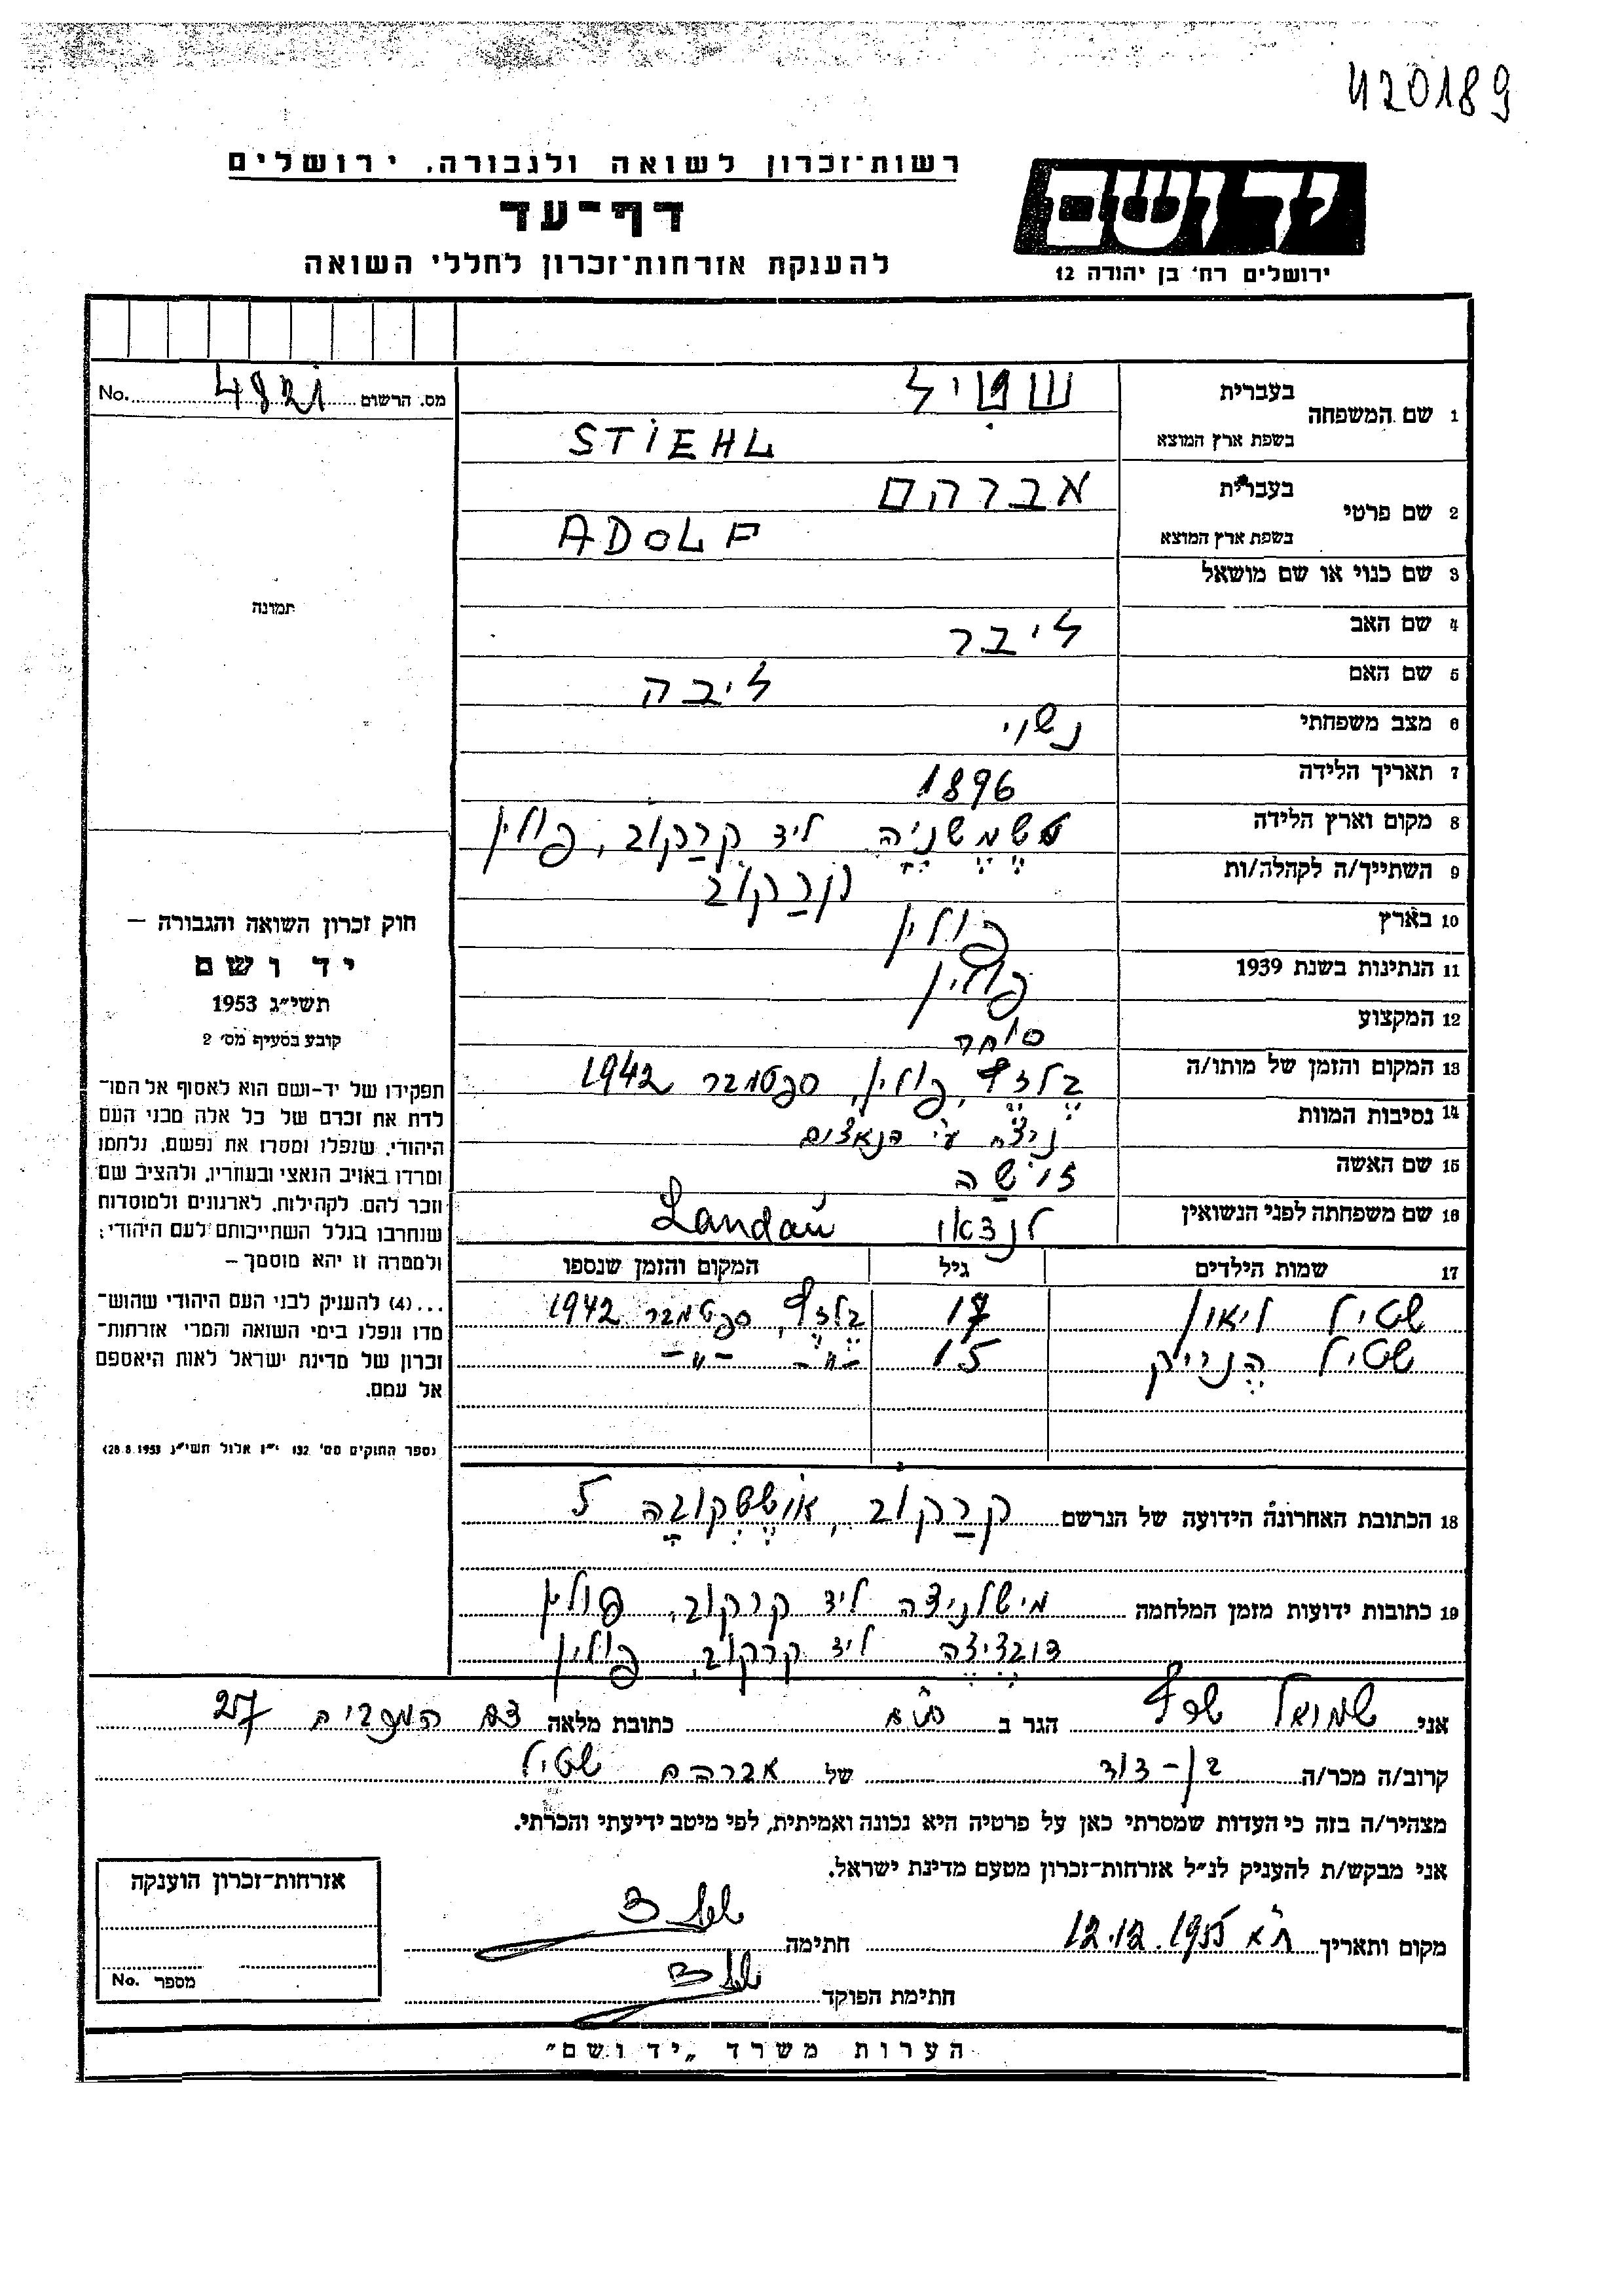 420189
רשות־זכרון לשואה ולגבורה. ירושלים
דף־עד
להענקת אזרחות־זכרון לחללי השואה
יד ושם
ירושלים רח' בן יהודה 12
מס. הרשום 4821 No.
1 שם המשפחה
בעברית שטיל
בשפת ארץ המוצא STIEHL
2 שם פרטי
בעברית אברהם
בשפת ארץ המוצא ADOLF
3 שם כנוי או שם מושאל
4 שם האב ליבר
5 שם האם ליבה
6 מצב משפחתי נשוי
7 תאריך הלידה 1896
8 מקום וארץ הלידה טשמשניה ליד קרקוב, פולין
9 השתייך/ה לקהלה/ות קרקוב
10 בארץ פולין
11 הנתינות בשנת 1939 פולין
12 המקצוע סוחר
13 המקום והזמן של מותו/ה בלזץ, פולין, ספטמבר 1942
14 נסיבות המוות נרצח ע"י הנאצים
15 שם האשה זוישה
16 שם משפחתה לפני הנשואין לנדאו Landau
17 שמות הילדים גיל המקום והזמן שנספו
שטיל ליאון 17 בלזץ, ספטמבר 1942
שטיל הנריק 15 -"- -"-
18 הכתובת האחרונה הידועה של הנרשם קרקוב, 5
19 כתובות ידועות מזמן המלחמה מישלניצה ליד קרקוב, פולין
דובצ'יצה ליד קרקוב, פולין
תמונה
חוק זכרון השואה והגבורה –
יד ושם
תשי״ג 1953
קובע בסעיף מס׳ 2
תפקידו של יד-ושם הוא לאסוף אל המו־
לדת את זכרם של כל אלה מבני העם
היהודי, שנפלו ומסרו את נפשם, נלחמו
ומרדו באויב הנאצי ובעוזריו, ולהציב שם
וזכר להם, לקהילות, לארגונים ולמוסדות
שנחרבו בגלל השתייכותם לעם היהודי;
ולמטרה זו יהא מוסמך –
...(4) להעניק לבני העם היהודי שהוש־
מדו ונפלו בימי השואה והמרי אזרחות־
זכרון של מדינת ישראל לאות היאספם
אל עמם.
(ספר החוקים מס׳ 132 י״ז אלול תשי״ג 28.8.1953)
אני שמואל הגר ב כתובת מלאה 27
קרוב/ה מכר/ה בן-דוד של אברהם שטיל
מצהיר/ה בזה כי העדות שמסרתי כאן על פרטיה היא נכונה ואמיתית, לפי מיטב ידיעתי והכרתי.
אני מבקש/ת להעניק לנ״ל אזרחות-זכרון מטעם מדינת ישראל.
מקום ותאריך ת"א 12.12.1955 חתימה
חתימת הפוקד
אזרחות-זכרון הוענקה
מספר No.
הערות משרד „יד ושם״